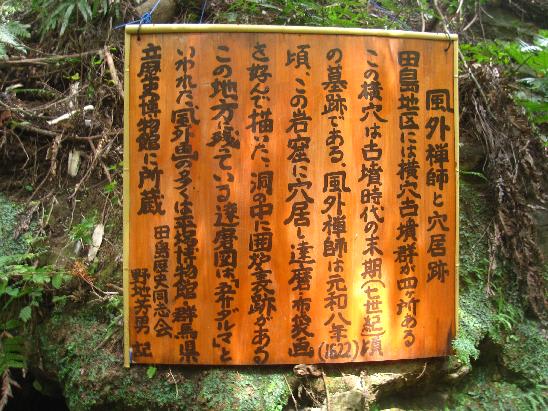 風外禅師と穴居跡
田島地区には横穴古墳群が四ヶ所ある
この横穴は古墳時代の末期(七世紀)頃
の墓跡である、風外禅師は元和八年(1622)
頃、この岩窟に穴居し達磨・布袋画
を好んで描いた、洞の中に囲炉裏跡がある
この地方に残っている達磨図は「布ダルマ」と
いわれた、風外画の多くは 博物館、群馬県
立歴史博物館に所蔵
田島歴史同志会
野地芳男 記